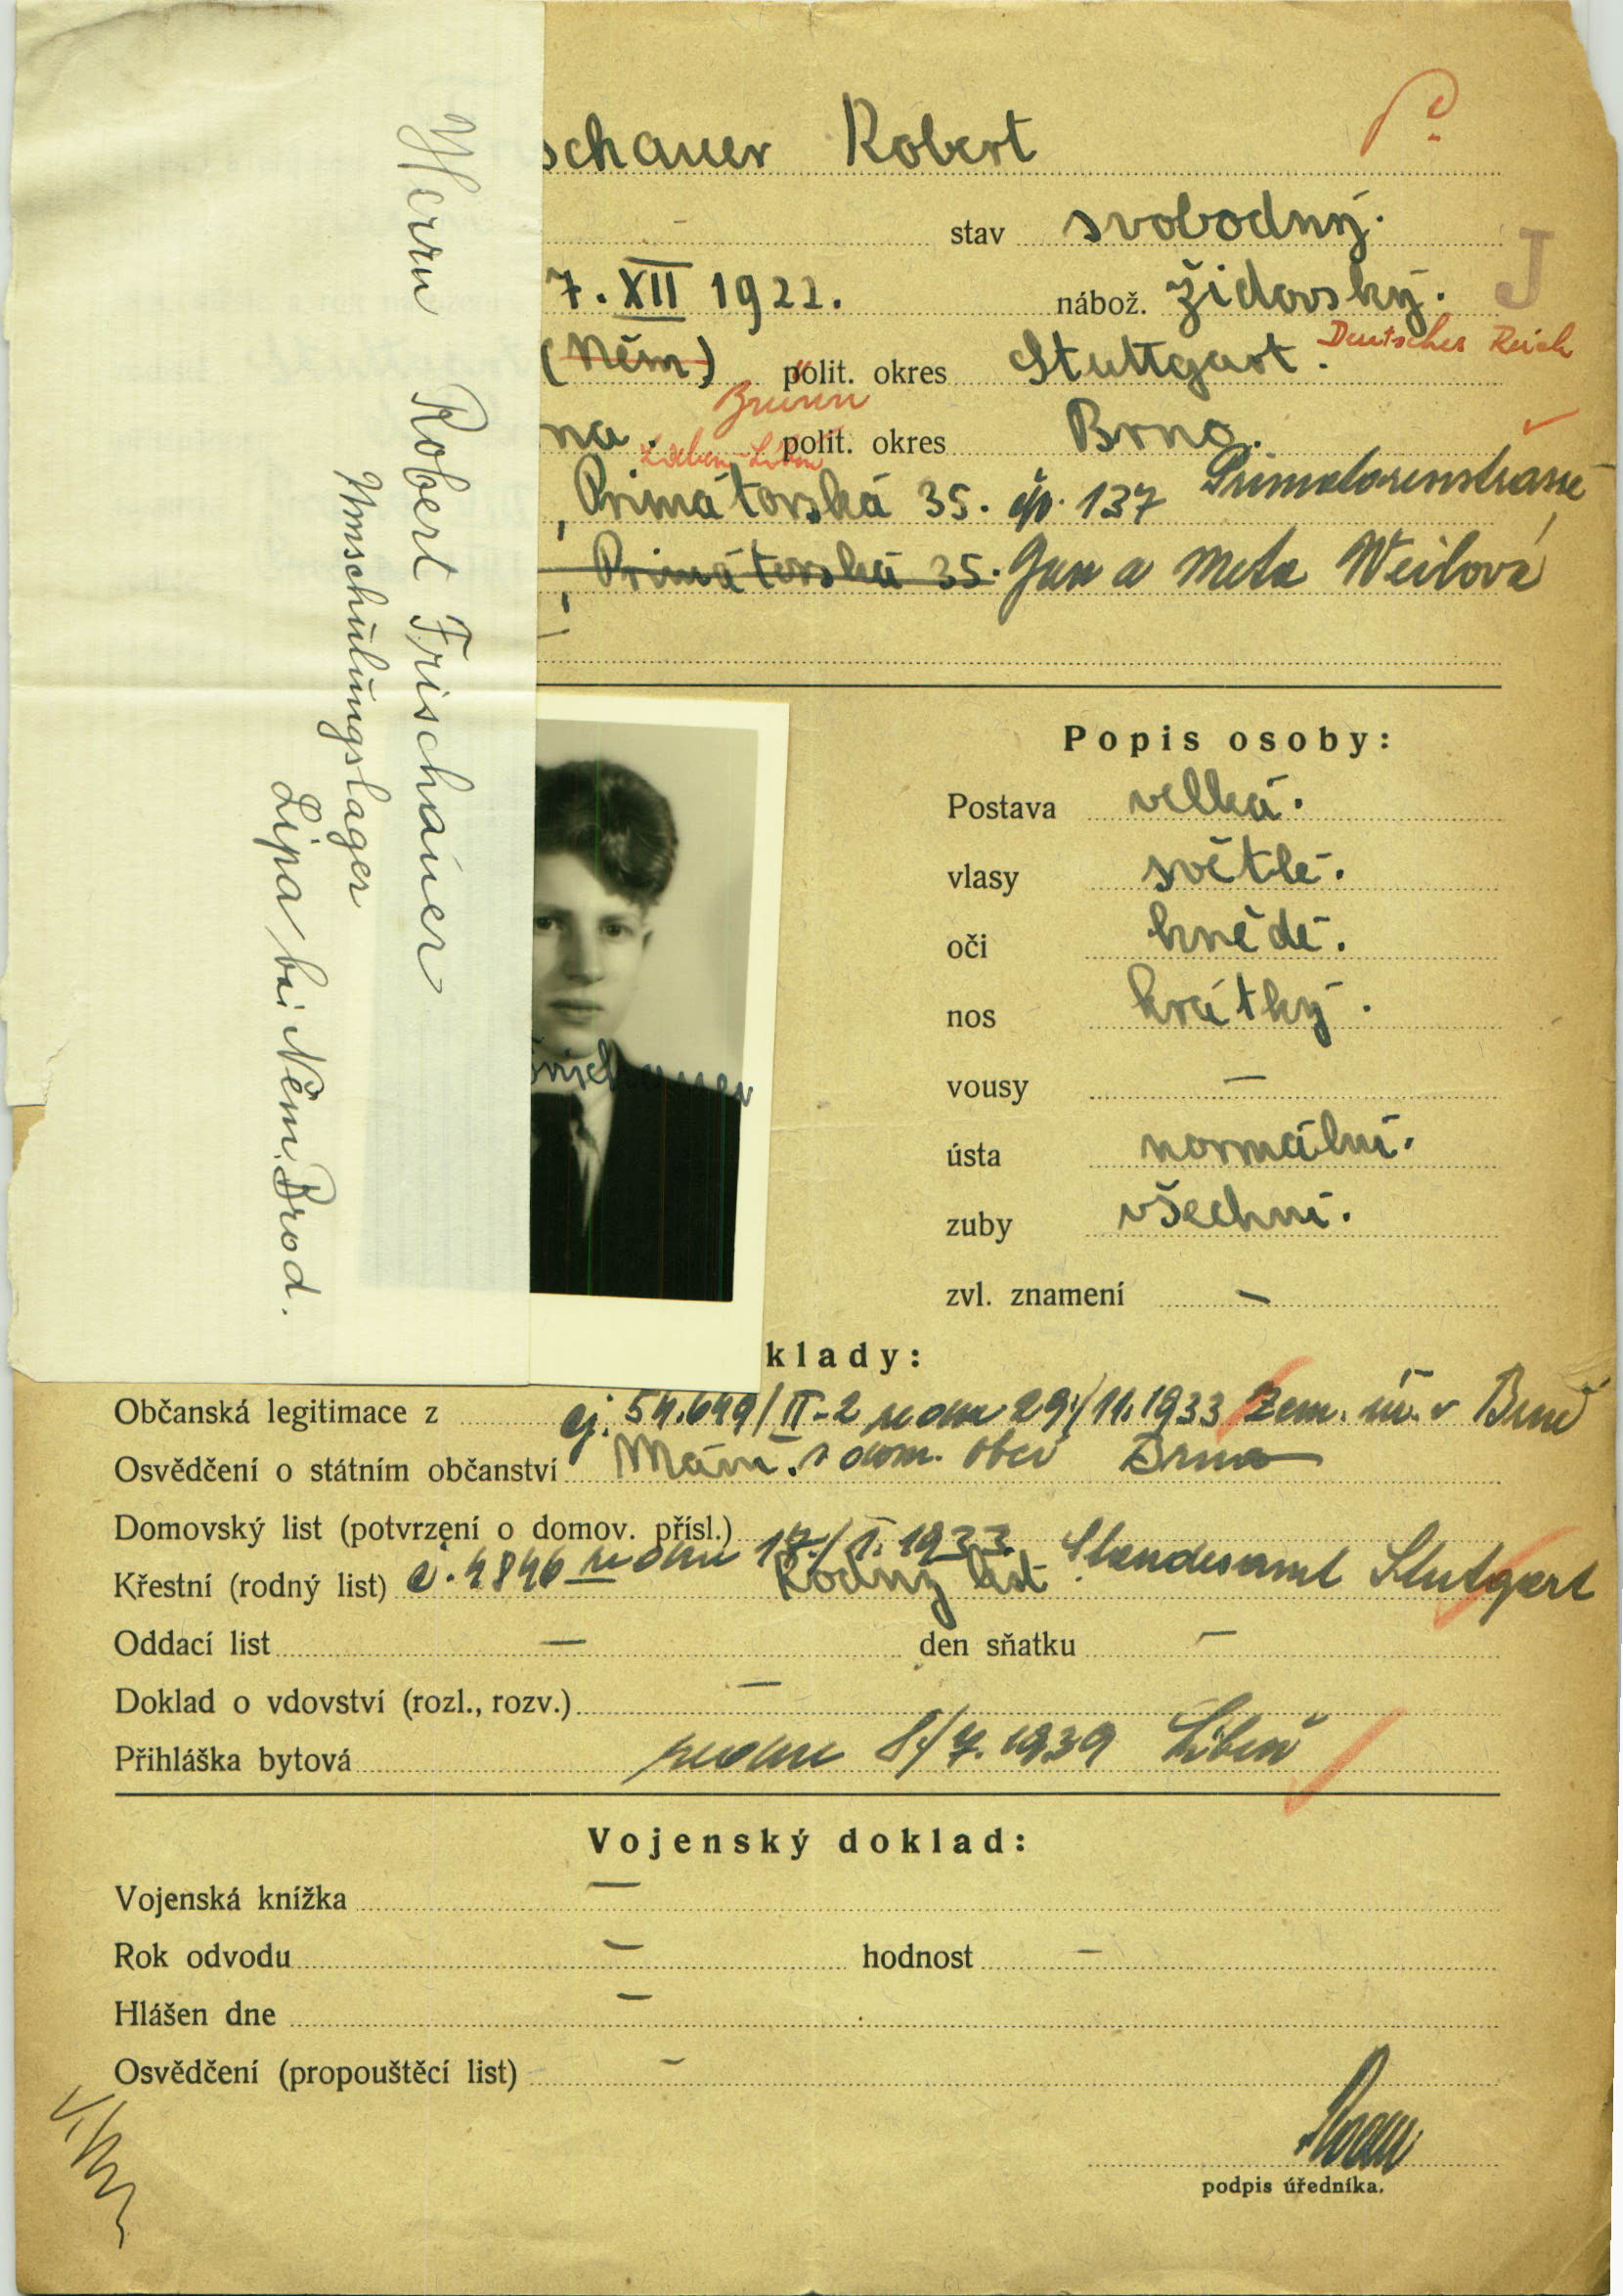 schauer Robert
stav svobodný.
7. XII 1922. nábož. židovský. J
(Něm) polit. okres Stuttgart. Deutsches Reich
Brünn
na. polit. okres Brno.
Primátorská 35. čp. 137 Primatorenstrasse
Primátorská 35. Jan a Meta Weilová
Herrn Robert Frischauer
Umschulungslager
Lípa / bei Něm. Brod.
Popis osoby:
Postava velká.
vlasy světlé.
oči hnědé.
nos krátký.
vousy —
ústa normální.
zuby všechni.
zvl. znamení —
klady:
Občanská legitimace z čj. 54.649/II-2 ze dne 29./11.1933 Zem. úř. v Brně
Osvědčení o státním občanství Mám. dom. obec Brno
Domovský list (potvrzení o domov. přísl.)
Křestní (rodný list) č. 4846 ze dne 17./1. 1933. Rodný list Standesamt Stutgart
Oddací list — den sňatku —
Doklad o vdovství (rozl., rozv.) —
Přihláška bytová ze dne 8/7. 1939 Libeň
Vojenský doklad:
Vojenská knížka —
Rok odvodu — hodnost —
Hlášen dne —
Osvědčení (propouštěcí list) -
podpis úředníka.